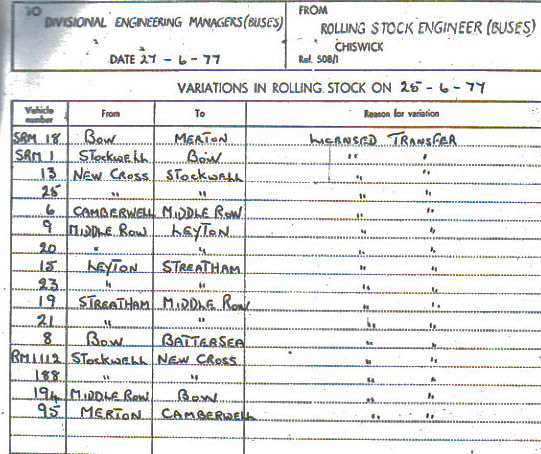 TO FROM
DIVISIONAL ENGINEERING MANAGERS (BUSES) ROLLING STOCK ENGINEER (BUSES)
CHISWICK
DATE 27-6-77 Ref. 508/1
VARIATIONS IN ROLLING STOCK ON 25-6-77
Vehicle number From To Reason for variation
SRM 18 BOW MERTON LICENSED TRANSFER
SRM 1 STOCKWELL BOW " "
13 NEW CROSS STOCKWELL " "
25 " " " "
6 CAMBERWELL MIDDLE ROW " "
9 MIDDLE ROW LEYTON " "
20 " " " "
15 LEYTON STREATHAM " "
23 " " " "
19 STREATHAM MIDDLE ROW " "
21 " " " "
8 BOW BATTERSEA " "
RM1112 STOCKWELL NEW CROSS " "
188 " " " "
194 MIDDLE ROW BOW " "
95 MERTON CAMBERWELL " "